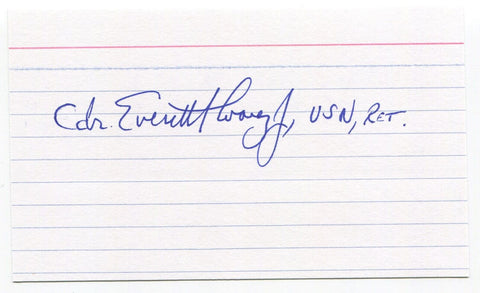 Cdr. Everett Alvarez Jr., USN, RET.